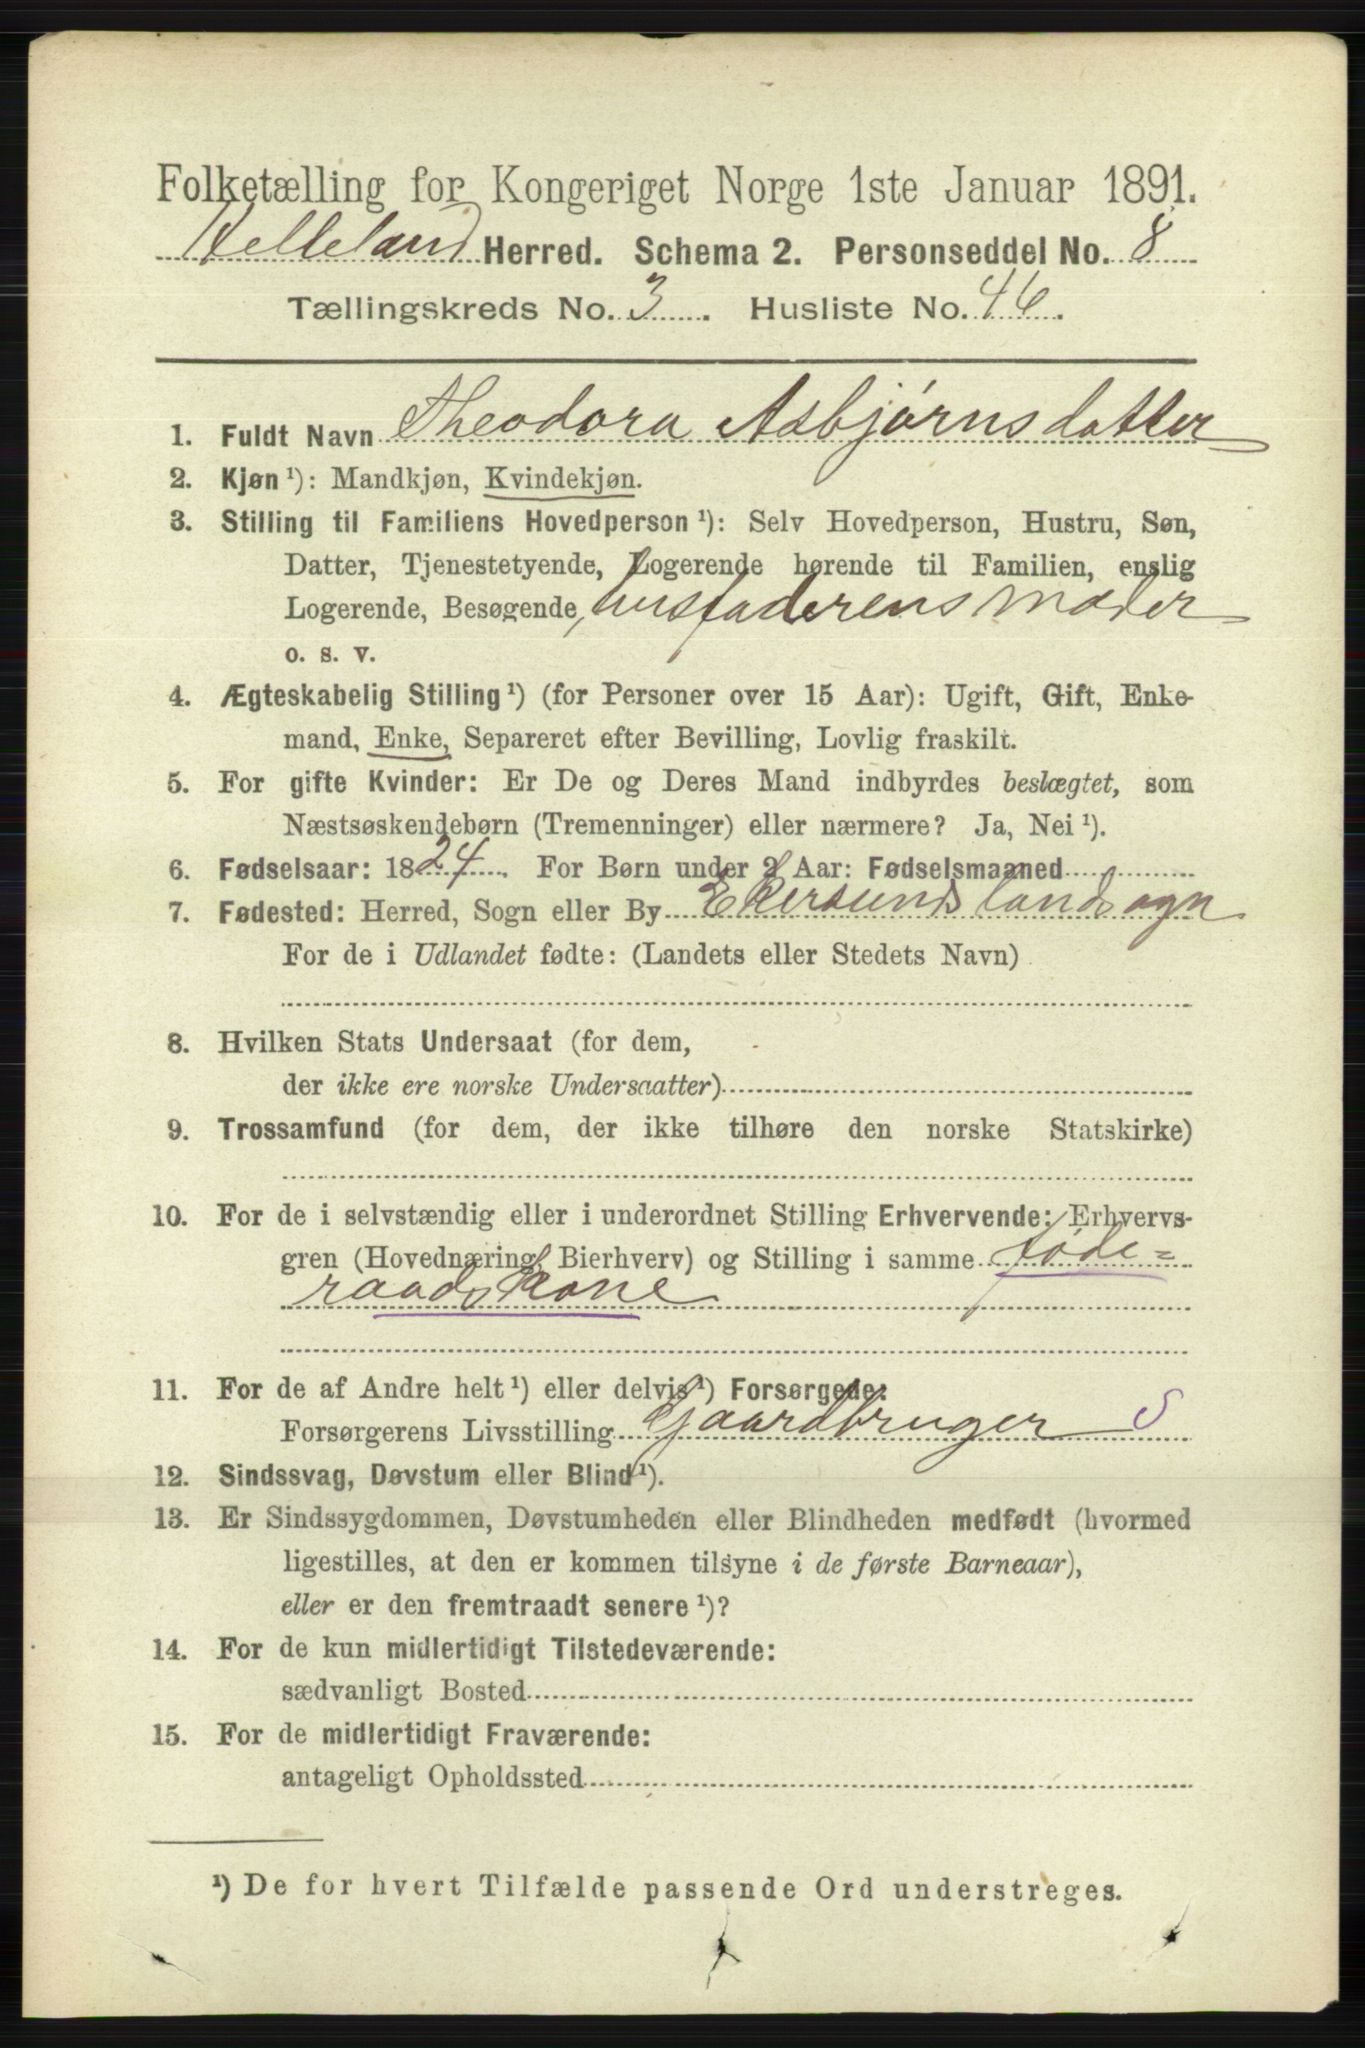 Folketælling for Kongeriget Norge 1ste Januar 1891.
Helleland Herred. Schema 2. Personseddel No. 8
Tællingskreds No. 3. Husliste No. 46.
1. Fuldt Navn Theodora Asbjørnsdatter
2. Kjøn ¹): Mandkjøn, Kvindekjøn.
3. Stilling til Familiens Hovedperson ¹): Selv Hovedperson, Hustru, Søn,
Datter, Tjenestetyende, Logerende hørende til Familien, enslig
Logerende, Besøgende, husfaderens moder
o. s. v.
4. Ægteskabelig Stilling ¹) (for Personer over 15 Aar): Ugift, Gift, Enke-
mand, Enke, Separeret efter Bevilling, Lovlig fraskilt.
5. For gifte Kvinder: Er De og Deres Mand indbyrdes beslægtet, som
Næstsøskendebørn (Tremenninger) eller nærmere? Ja, Nei ¹).
6. Fødselsaar: 1824. For Børn under 2 Aar: Fødselsmaaned
7. Fødested: Herred, Sogn eller By Ekersunds landsogn
For de i Udlandet fødte: (Landets eller Stedets Navn)
8. Hvilken Stats Undersaat (for dem,
der ikke ere norske Undersaatter)
9. Trossamfund (for dem, der ikke tilhøre den norske Statskirke)
10. For de i selvstændig eller i underordnet Stilling Erhvervende: Erhvervs-
gren (Hovednæring, Bierhverv) og Stilling i samme føde=
raadskone
11. For de af Andre helt ¹) eller delvis ¹) Forsørgede:
Forsørgerens Livsstilling Gaardbruger S
12. Sindssvag, Døvstum eller Blind ¹).
13. Er Sindssygdommen, Døvstumheden eller Blindheden medfødt (hvormed
ligestilles, at den er kommen tilsyne i de første Barneaar),
eller er den fremtraadt senere ¹)?
14. For de kun midlertidigt Tilstedeværende:
sædvanligt Bosted
15. For de midlertidigt Fraværende:
antageligt Opholdssted
¹) De for hvert Tilfælde passende Ord understreges.